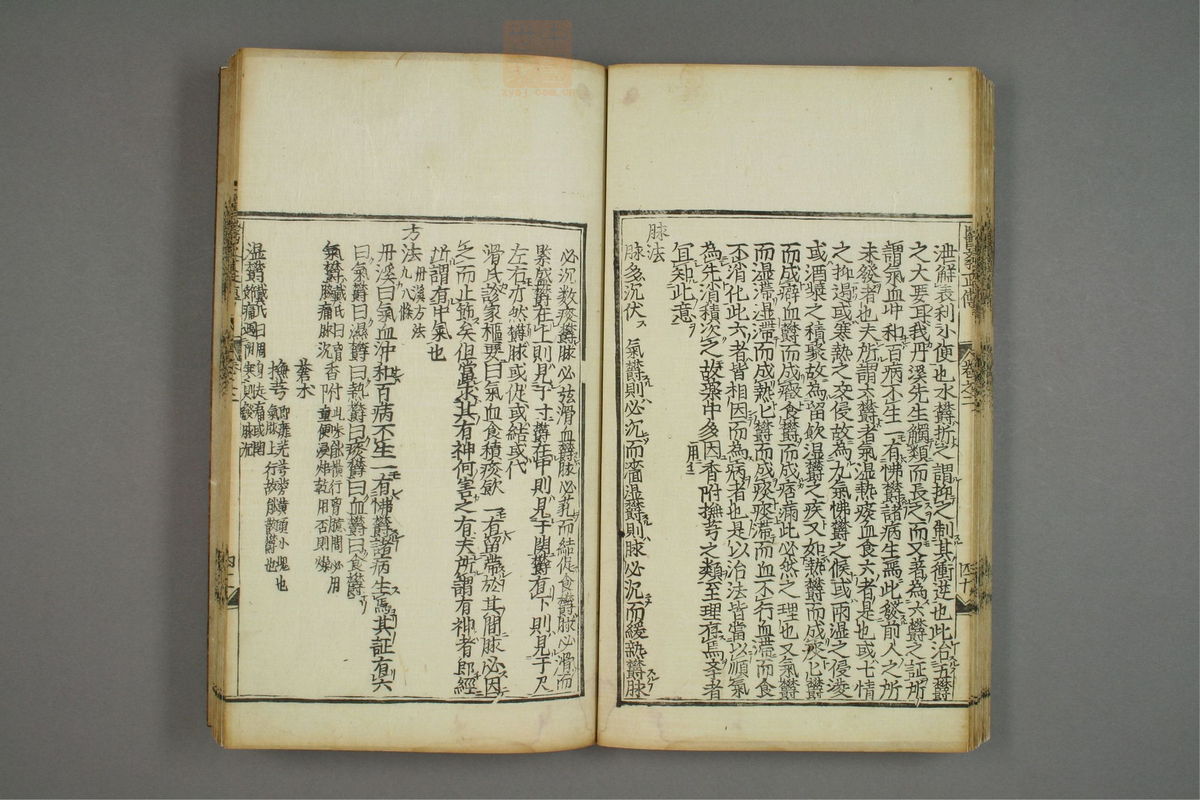 泄鮮表利小便也水欝折之謂抑之制其衝逆也此治五欝
之大要耳我丹溪先生觸類而長之而又著為六欝之証所
謂氣血冲和百病不生一有怫欝諸病生焉此發前人之所
未發者也夫所謂六欝者氣湿熱痰血食六者是也或七情
之抑遏或寒熱之交侵故為九氣怫欝之候或雨湿之侵凌
或酒漿之積聚故為留飲湿欝之疾又如熱欝而成痰痰欝
而成癖血欝而成癥食欝而成痞病此必然之理也又氣欝
而湿滯湿滯而成熱熱欝而成痰痰滯而血不行血滯而食
不消化此六者皆相因而為病者也是以治法皆當以順氣
為先消積次之故藥中多用香附撫芎之類至理存焉李者
宜知此意
脉法
脉多沉伏 氣欝則必沉而濇湿欝則脉必沉而緩熱欝脉
必沉数痰欝脉必弦滑血欝脉必芤而結促食欝脉必滑而
緊盛欝在上則見于寸欝在中則見于関欝在下則見于尺
左右亦然欝脉或促或結或代
滑氏診家樞要曰氣血食積痰飲一有留帶於其間脉必因
之而止節矣但當求其有神何害之有夫所謂有神者即經
所謂有中氣也
方法 丹溪方法
九八條
丹溪曰氣血沖和百病不生一有怫欝諸病生焉其証有六
曰氣欝曰濕欝曰熱欝曰痰欝曰血欝曰食欝
氣欝 胸脇痛脉沉
香附
蒼木
撫芎 即蕪
湿欝
醫學正傳
卷之二
四十